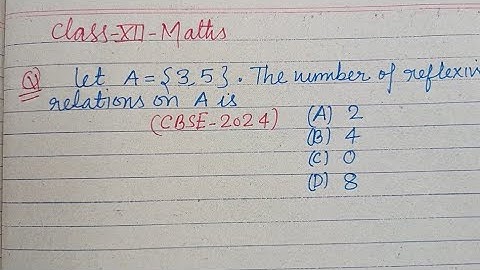 Class-XII-Maths
Q let A = {3,5}. The number of reflexiv
relations on A is
(CBSE-2024)
(A) 2
(B) 4
(C) 0
(D) 8